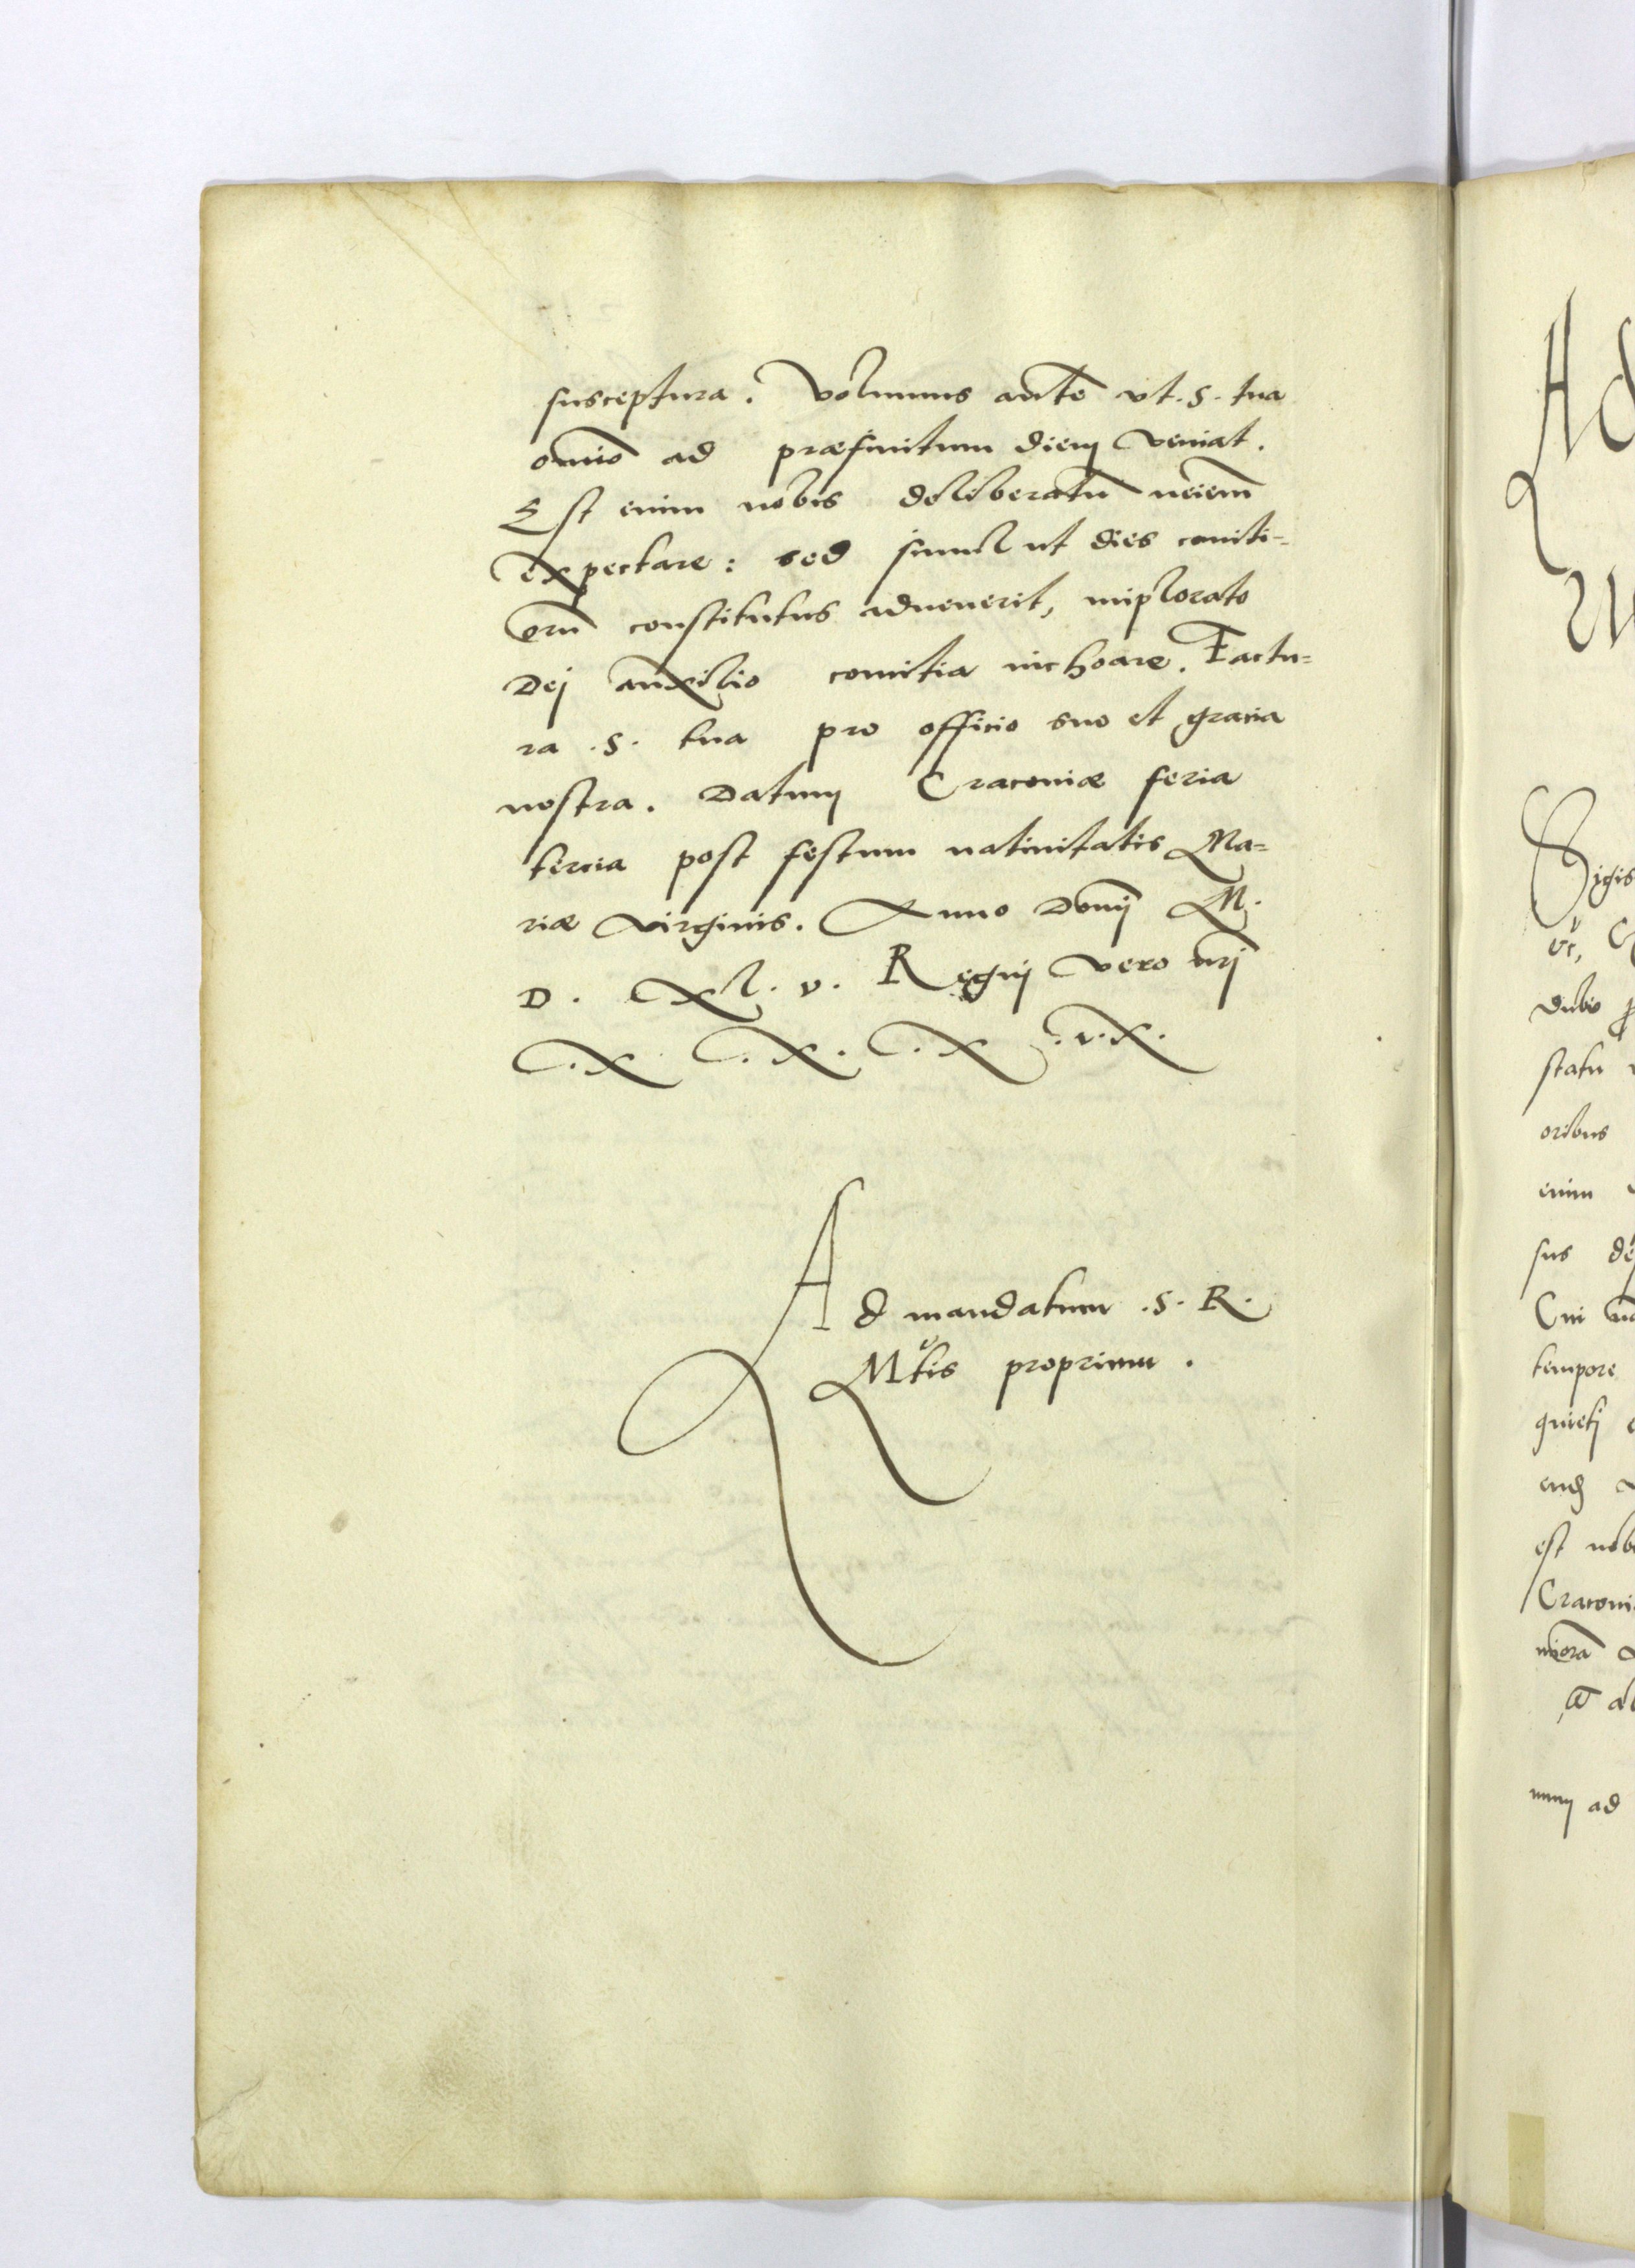 susceptura. Volumus aute vt .S. tua
omio ad præfinitum diem veniat.
Est enim nobis deliberatu neiem
expectare: sed simul ut dies comiti-
oru constitutus aduenerit, implorato
Dej auxilio comitia inchoare. Factu=
ra .S. tua pro officio suo et gracia
nostra. Datum Cracouiæ feria
tercia post festum natiuitatis Ma=
riæ Virginis. Anno Domj M.
D. Xl. v. Regnj vero nrj
X. X. X. .v.X.
Ad mandatum .S. R.
Mtis proprium.
Ad
Sigis
dubio
statu
oribus
enim
sus
Cui
tempore
quietj
est
Cracoui
ad